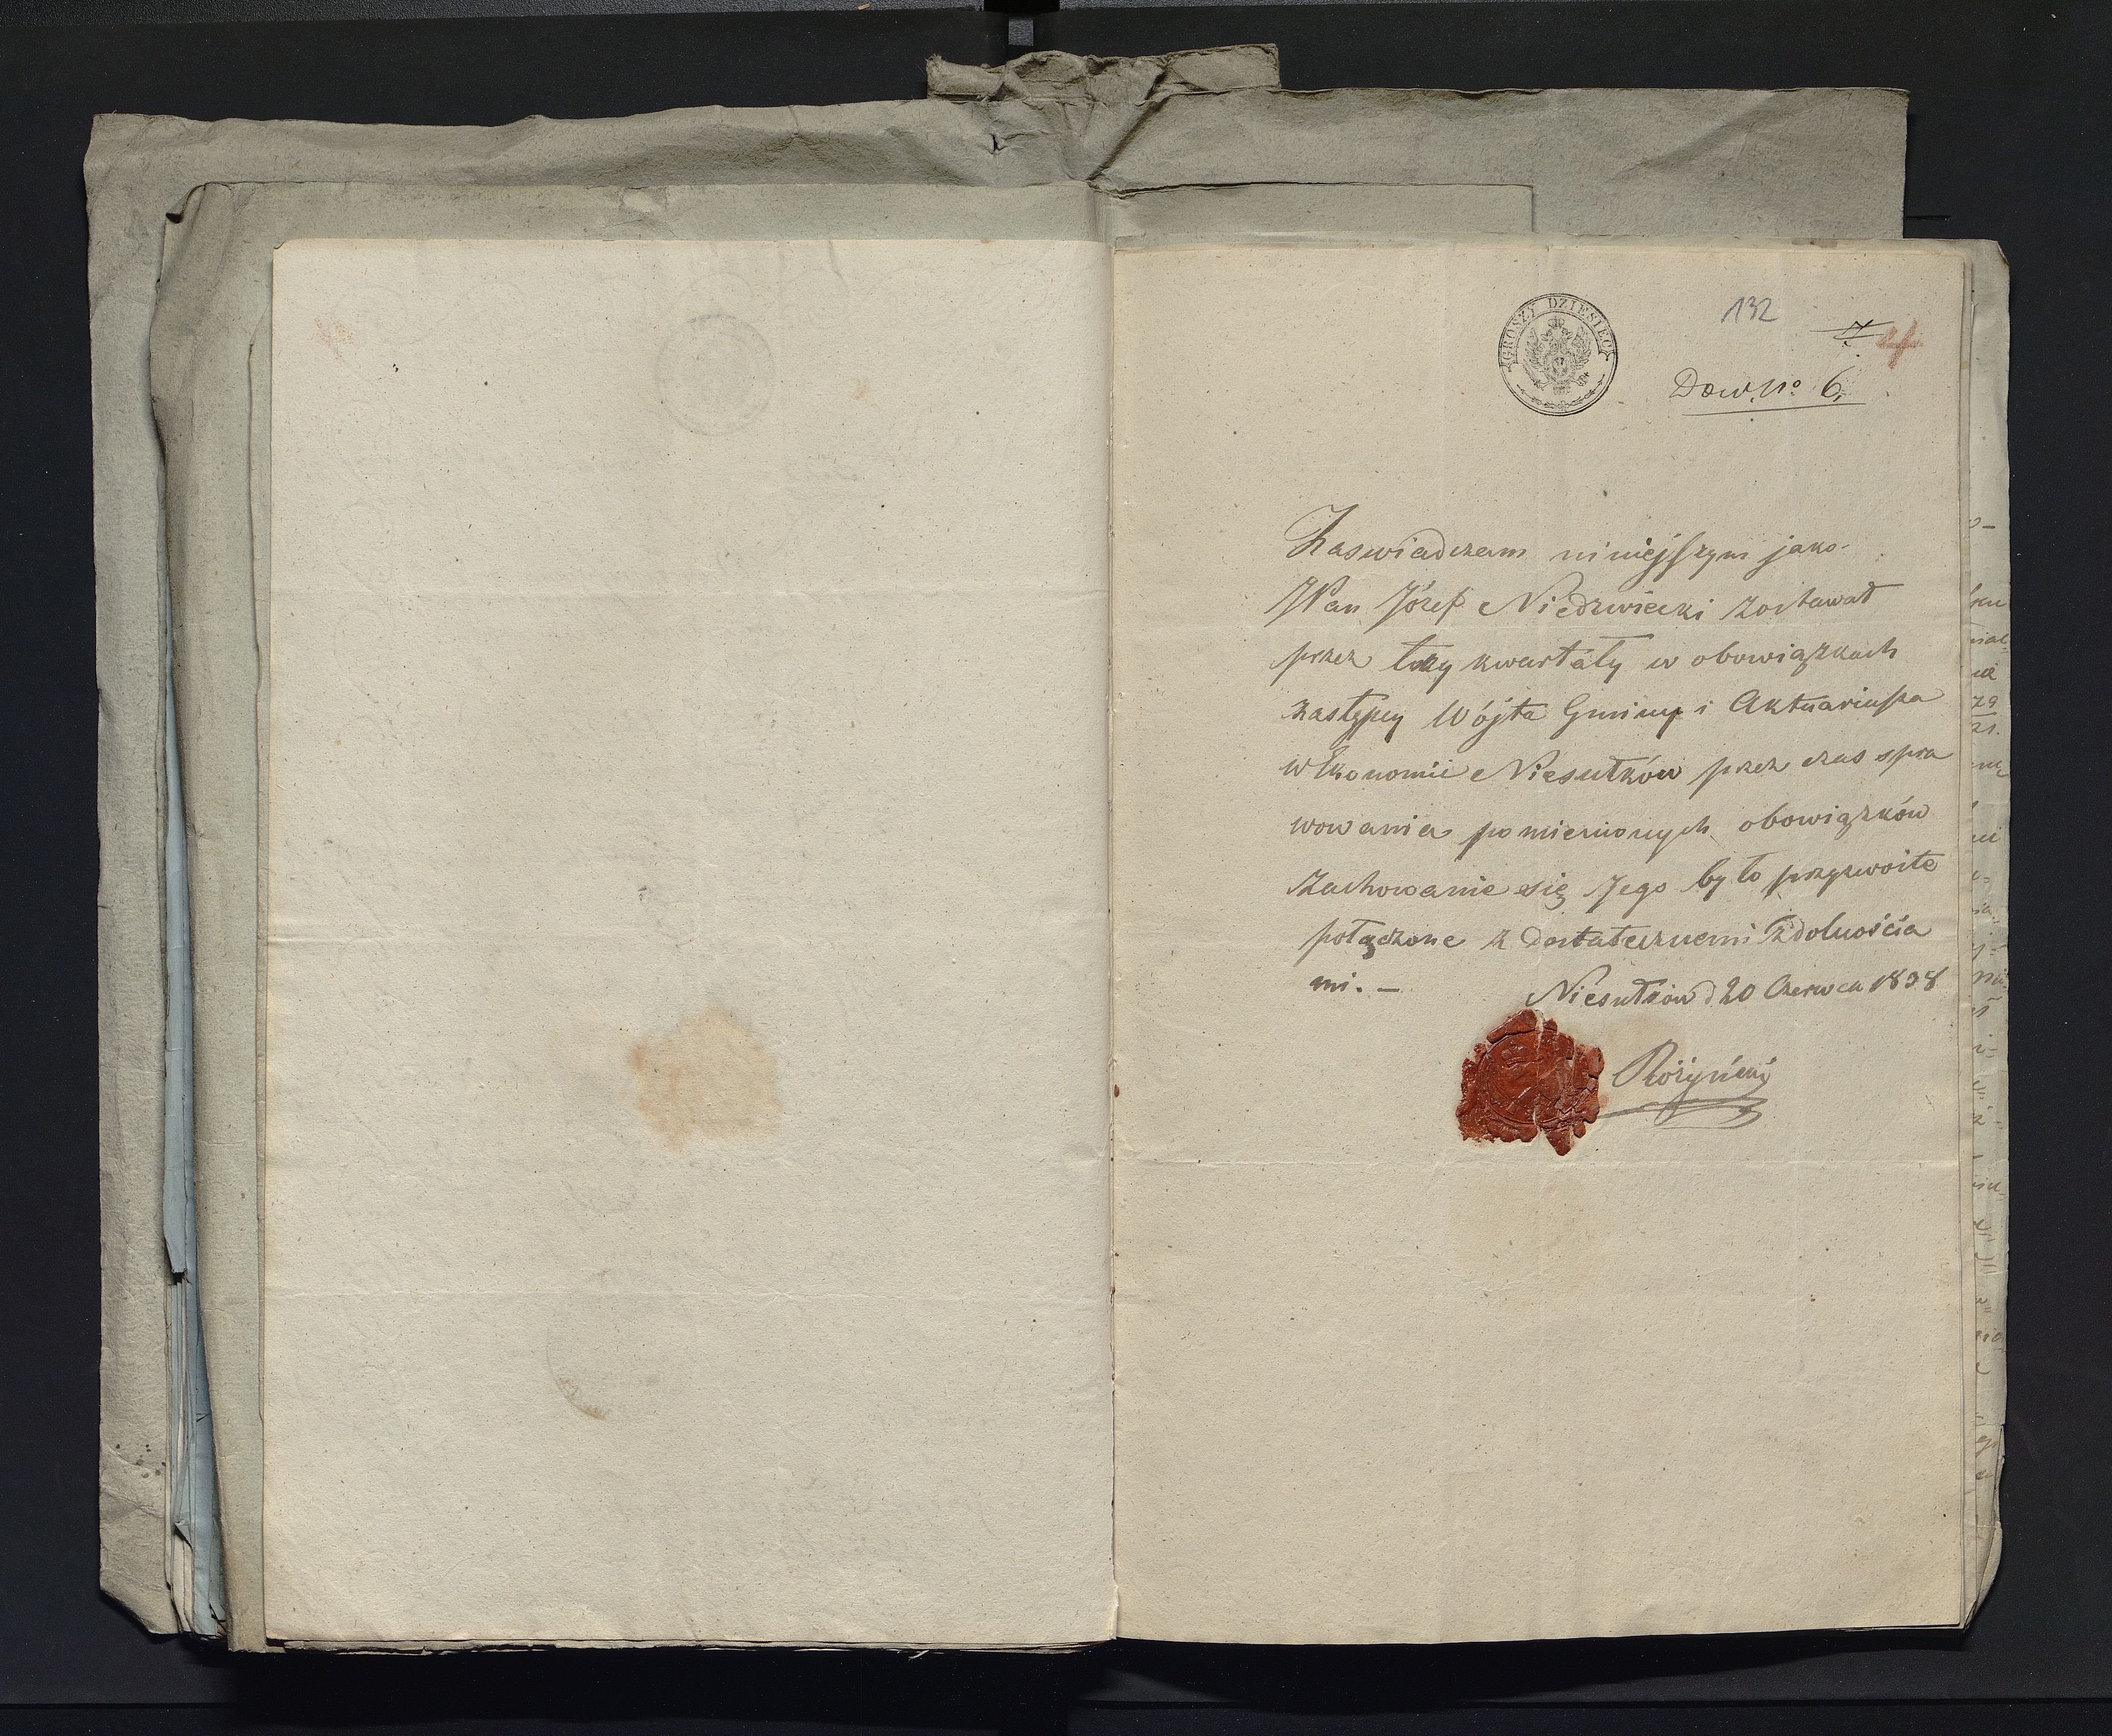 GROSZY DZIESIĘĆ
132
7
Dow. No 6,
Zaswiadczam niniejszym jako
JPan Józef Niedzwiecki zostawał
przez trzy kwartały w obowiązkach
zastępcy Wójta Gminy i Aktuariusza
w Ekonomii Niesułków przez czas spra
wowania pomienionych obowiązków
zachowanie się Jego było przyzwoite
połączone z dostatecznemi zdolnościa
mi. —
Niesułków d 20 Czerwca 1838